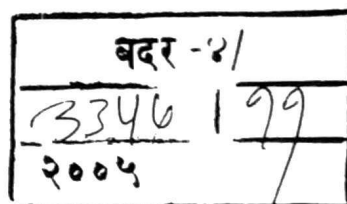 बदर -४/
3346 | 99
२००५